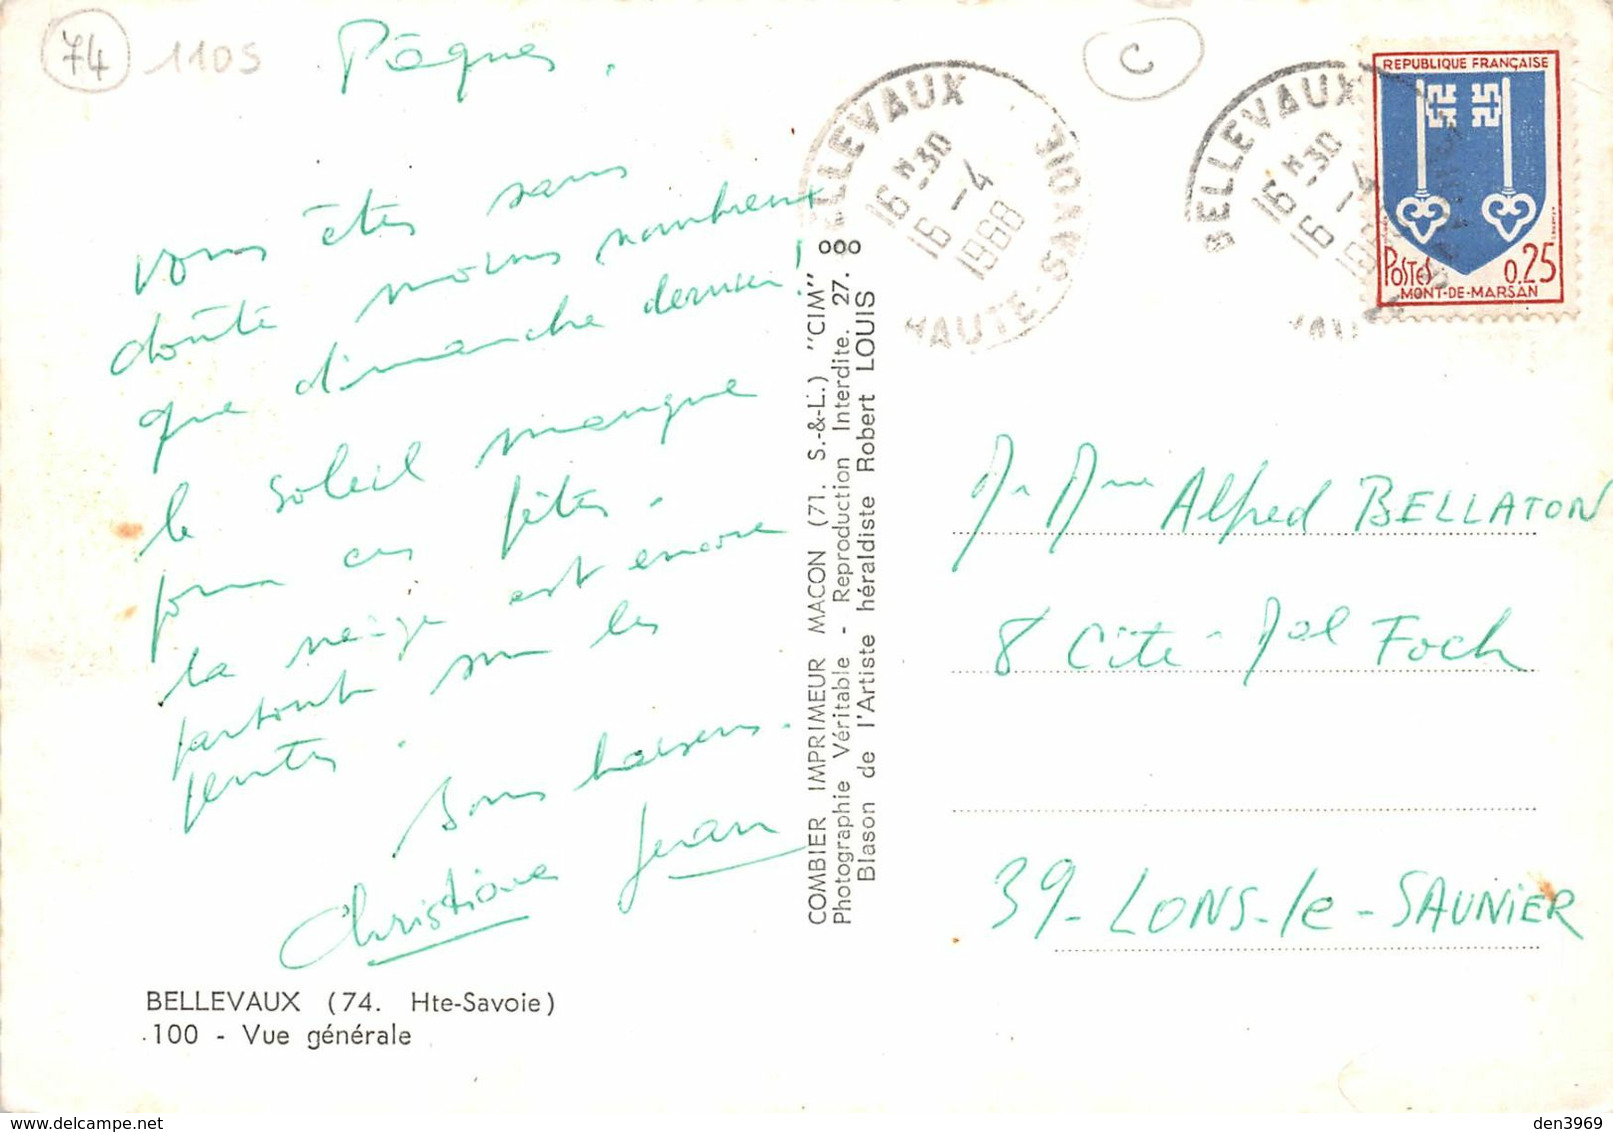 74
1105
Pâques.
vous êtes sans
doute moins nombreux
que dimanche dernier!
le soleil manque
pour ces fêtes.
la neige est encore
partout sur les
pentes.
Bons baisers.
Christiane Jean
BELLEVAUX (74. Hte-Savoie)
100 - Vue générale
COMBIER IMPRIMEUR MACON (71. S.-&-L.) "CIM" ooo
Photographie Véritable - Reproduction Interdite. 27. o
Blason de l'Artiste héraldiste Robert LOUIS
C
BELLEVAUX
16 H 30
16 - 4
1968
HAUTE-SAVOIE
BELLEVAUX
16 H 30
16 - 4
REPUBLIQUE FRANÇAISE
POSTES 0.25
MONT-DE-MARSAN
Mr Mme Alfred BELLATON
8 Cité - Mal Foch
39 - LONS-le-SAUNIER
delcampe.net
den3969